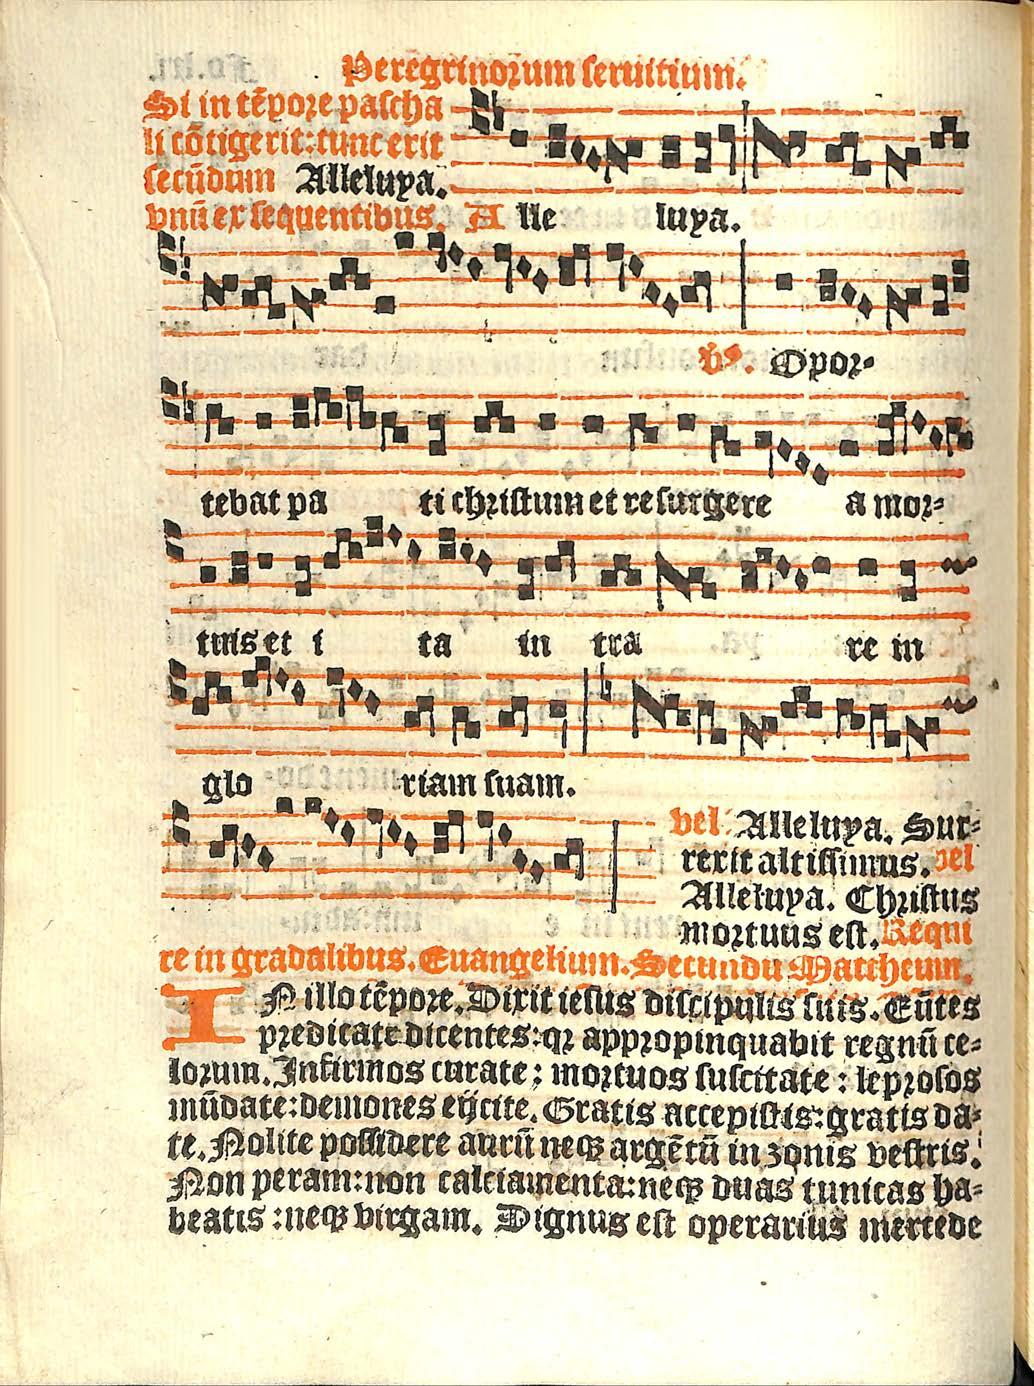 Peregrinorum seruitium.
Si in tēpore pascha
li cōtigerit: tunc erit
secūdum Alleluya.
vnū ex sequentibus. A lle luya.
℣. Opor-
tebat pa ti christum et resurgere a mor-
tuis et i ta in tra re in
glo riam suam.
vel Alleluya. Sur-
rexit altissimus. vel
Alleluya. Christus
mortuus est. Requi
re in gradalibus. Euangelium. Secundū Mattheum.
IN illo tēpore. Dixit iesus discipulis suis. Eūtes
predicate dicentes: qꝛ appropinquabit regnū ce-
lorum. Infirmos curate: mortuos suscitate: leprosos
mūdate: demones eijcite. Gratis accepistis: gratis da-
te. Nolite possidere aurū neqꝫ argētū in zonis vestris.
Non peram: non calciamenta: neqꝫ duas tunicas ha-
beatis: neqꝫ virgam. Dignus est operarius mercede